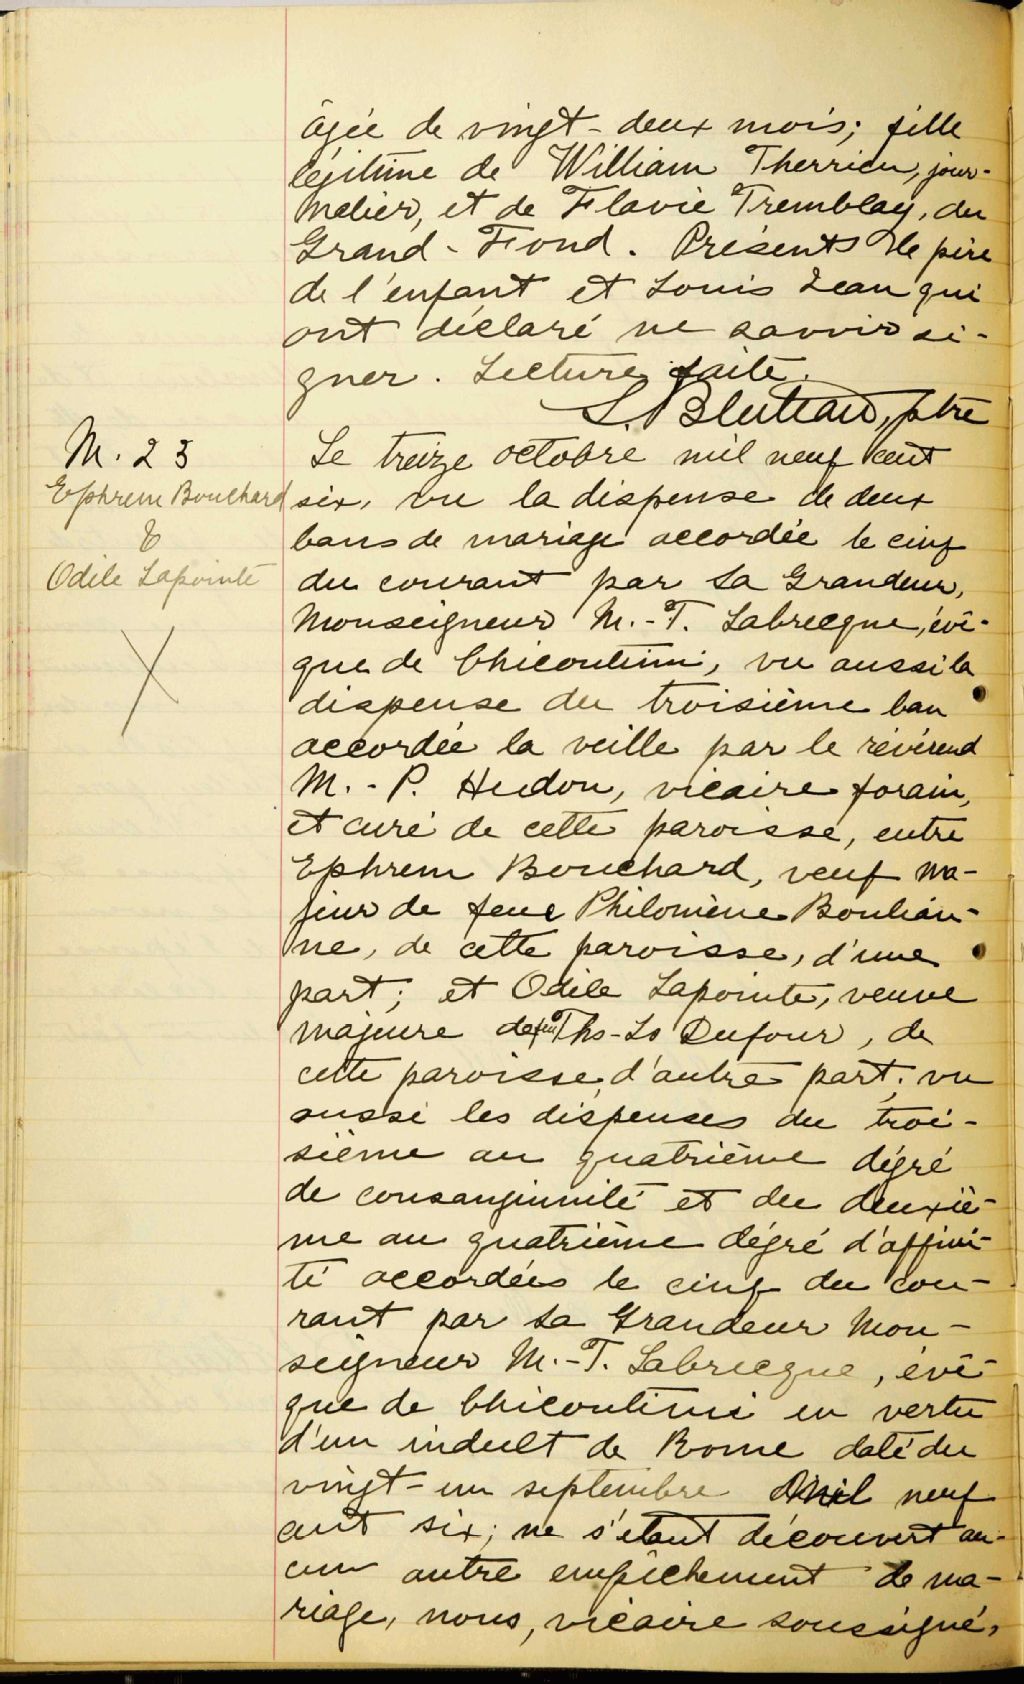 âgée de vingt-deux mois; fille
légitime de William Therrien, jour-
nalier, et de Flavie Tremblay, du
Grand-Fond. Présents le père
de l'enfant et Louis Jean qui
ont déclaré ne savoir si-
gner. Lecture faite.
L. Bluteau, ptre
M. 23
Ephrem Bouchard
&
Odile Lapointe
Le treize octobre mil neuf cent
six, vu la dispense de deux
bans de mariage accordée le cinq
du courant par Sa Grandeur,
Monseigneur M.-T. Labrecque, évê-
que de Chicoutimi, vu aussi la
dispense du troisième ban
accordée la veille par le révérend
M.-P. Hudon, vicaire forain,
et curé de cette paroisse, entre
Ephrem Bouchard, veuf ma-
jeur de feue Philomène Boulian-
ne, de cette paroisse, d'une
part; et Odile Lapointe, veuve
majeure de feu Ths-Ls Dufour, de
cette paroisse, d'autre part; vu
aussi les dispenses du troi-
sième au quatrième dégré
de consanguinité et du deuxiè-
me au quatrième dégré d'affini-
té accordées le cinq du cou-
rant par Sa Grandeur Mon-
seigneur M.-T. Labrecque, évê-
que de Chicoutimi en vertu
d'un indult de Rome daté du
vingt-un septembre mil neuf
cent six; ne s'étant découvert au-
cun autre empêchement de ma-
riage, nous, vicaire soussigné,